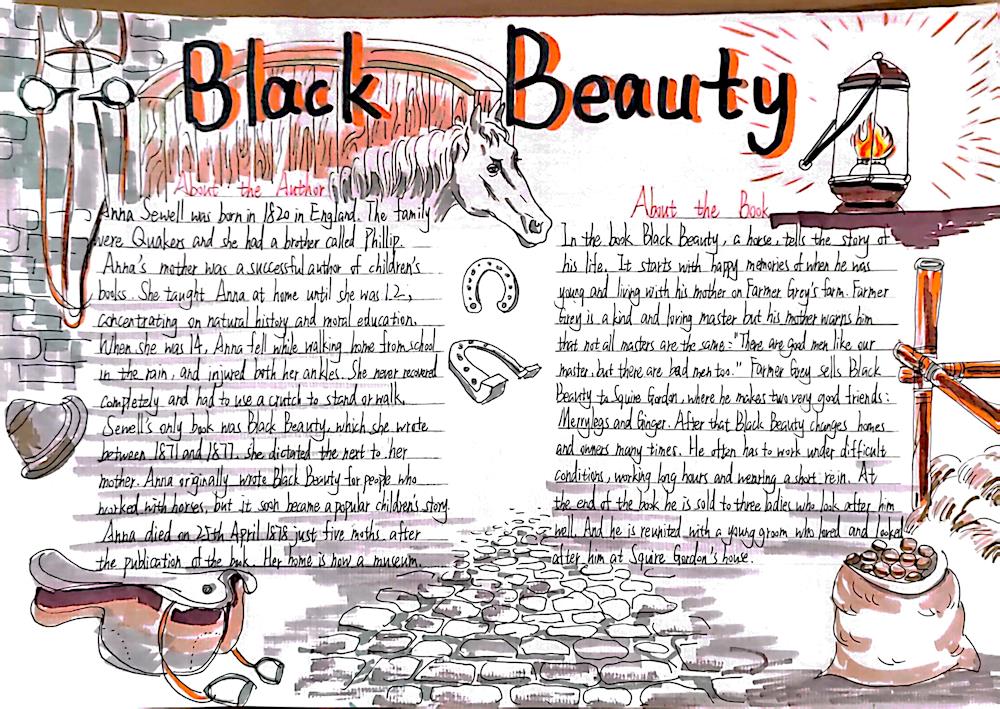 Black Beauty
About the Author
Anna Sewell was born in 1820 in England. The family
were Quakers and she had a brother called Phillip.
Anna's mother was a successful author of children's
books. She taught Anna at home until she was 12,
concentrating on natural history and moral education.
When she was 14, Anna fell while walking home from school
in the rain, and injured both her ankles. She never recovered
completely and had to use a crutch to stand or walk.
Sewell's only book was Black Beauty, which she wrote
between 1871 and 1877. she dictated the next to her
mother. Anna originally wrote Black Beauty for people who
worked with horses, but it soon became a popular children's story.
Anna died on 25th April 1878 just five moths after
the publication of the book. Her home is now a museum.
About the Book
In the book Black Beauty, a horse, tells the story of
his life. It starts with happy memories of when he was
young and living with his mother on Farmer Grey's farm. Farmer
Grey is a kind and loving master but his mother warns him
that not all masters are the same: "There are good men like our
master, but there are bad men too." Farmer Grey sells Black
Beauty to Squire Gordon, where he makes two very good friends:
Merrylegs and Ginger. After that Black Beauty changes homes
and owners many times. He often has to work under difficult
conditions, working long hours and wearing a short rein. At
the end of the book he is sold to three ladies who look after him
well. And he is reunited with a young groom who loved and looked
after him at Squire Gordon's house.